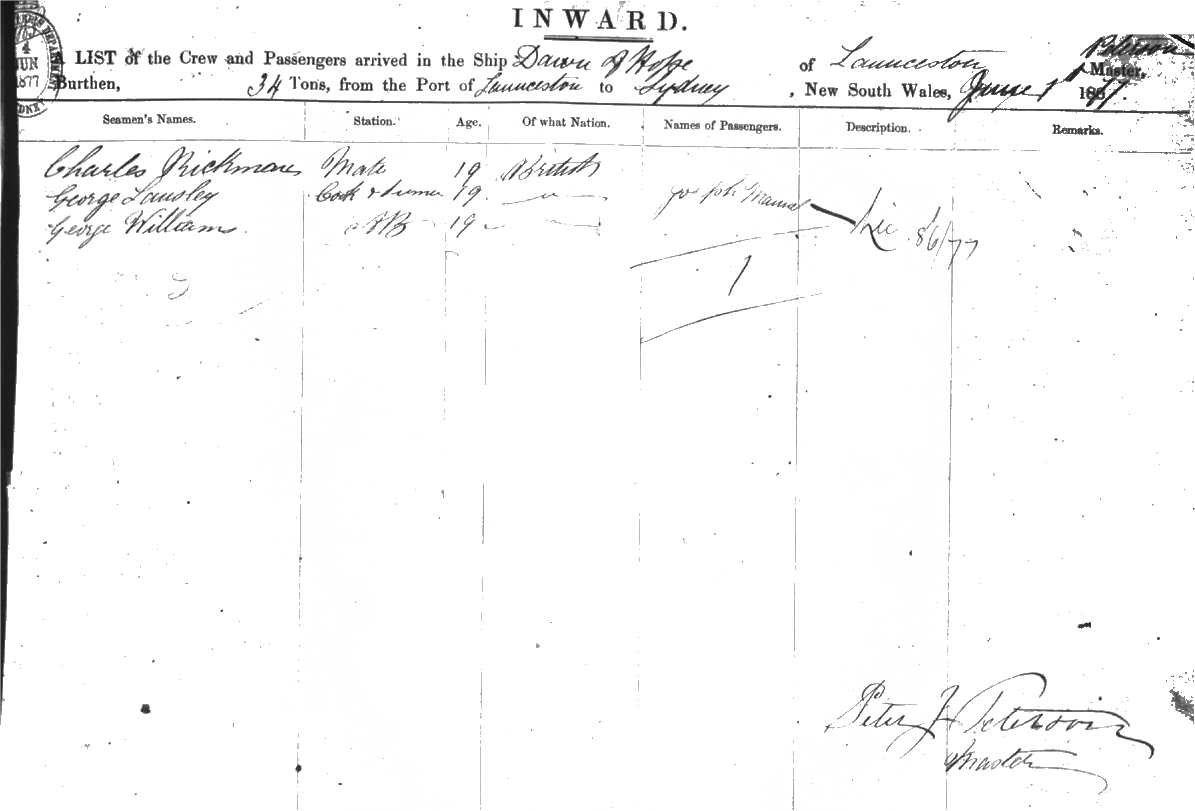 INWARD.
4
JUN
1877
A LIST of the Crew and Passengers arrived in the Ship Dawn of Hope of Launceston Peterson Master,
Burthen, 34 Tons, from the Port of Launceston to Sydney, New South Wales, June 1st 187
Seamen's Names. Station. Age. Of what Nation. Names of Passengers. Description. Remarks.
Charles Rickman Mate 19 British
George Lansley Cook & 19 " Joseph Manuel
George Williams AB 19
Lic 86/77
1
Peter J Peterson
Master